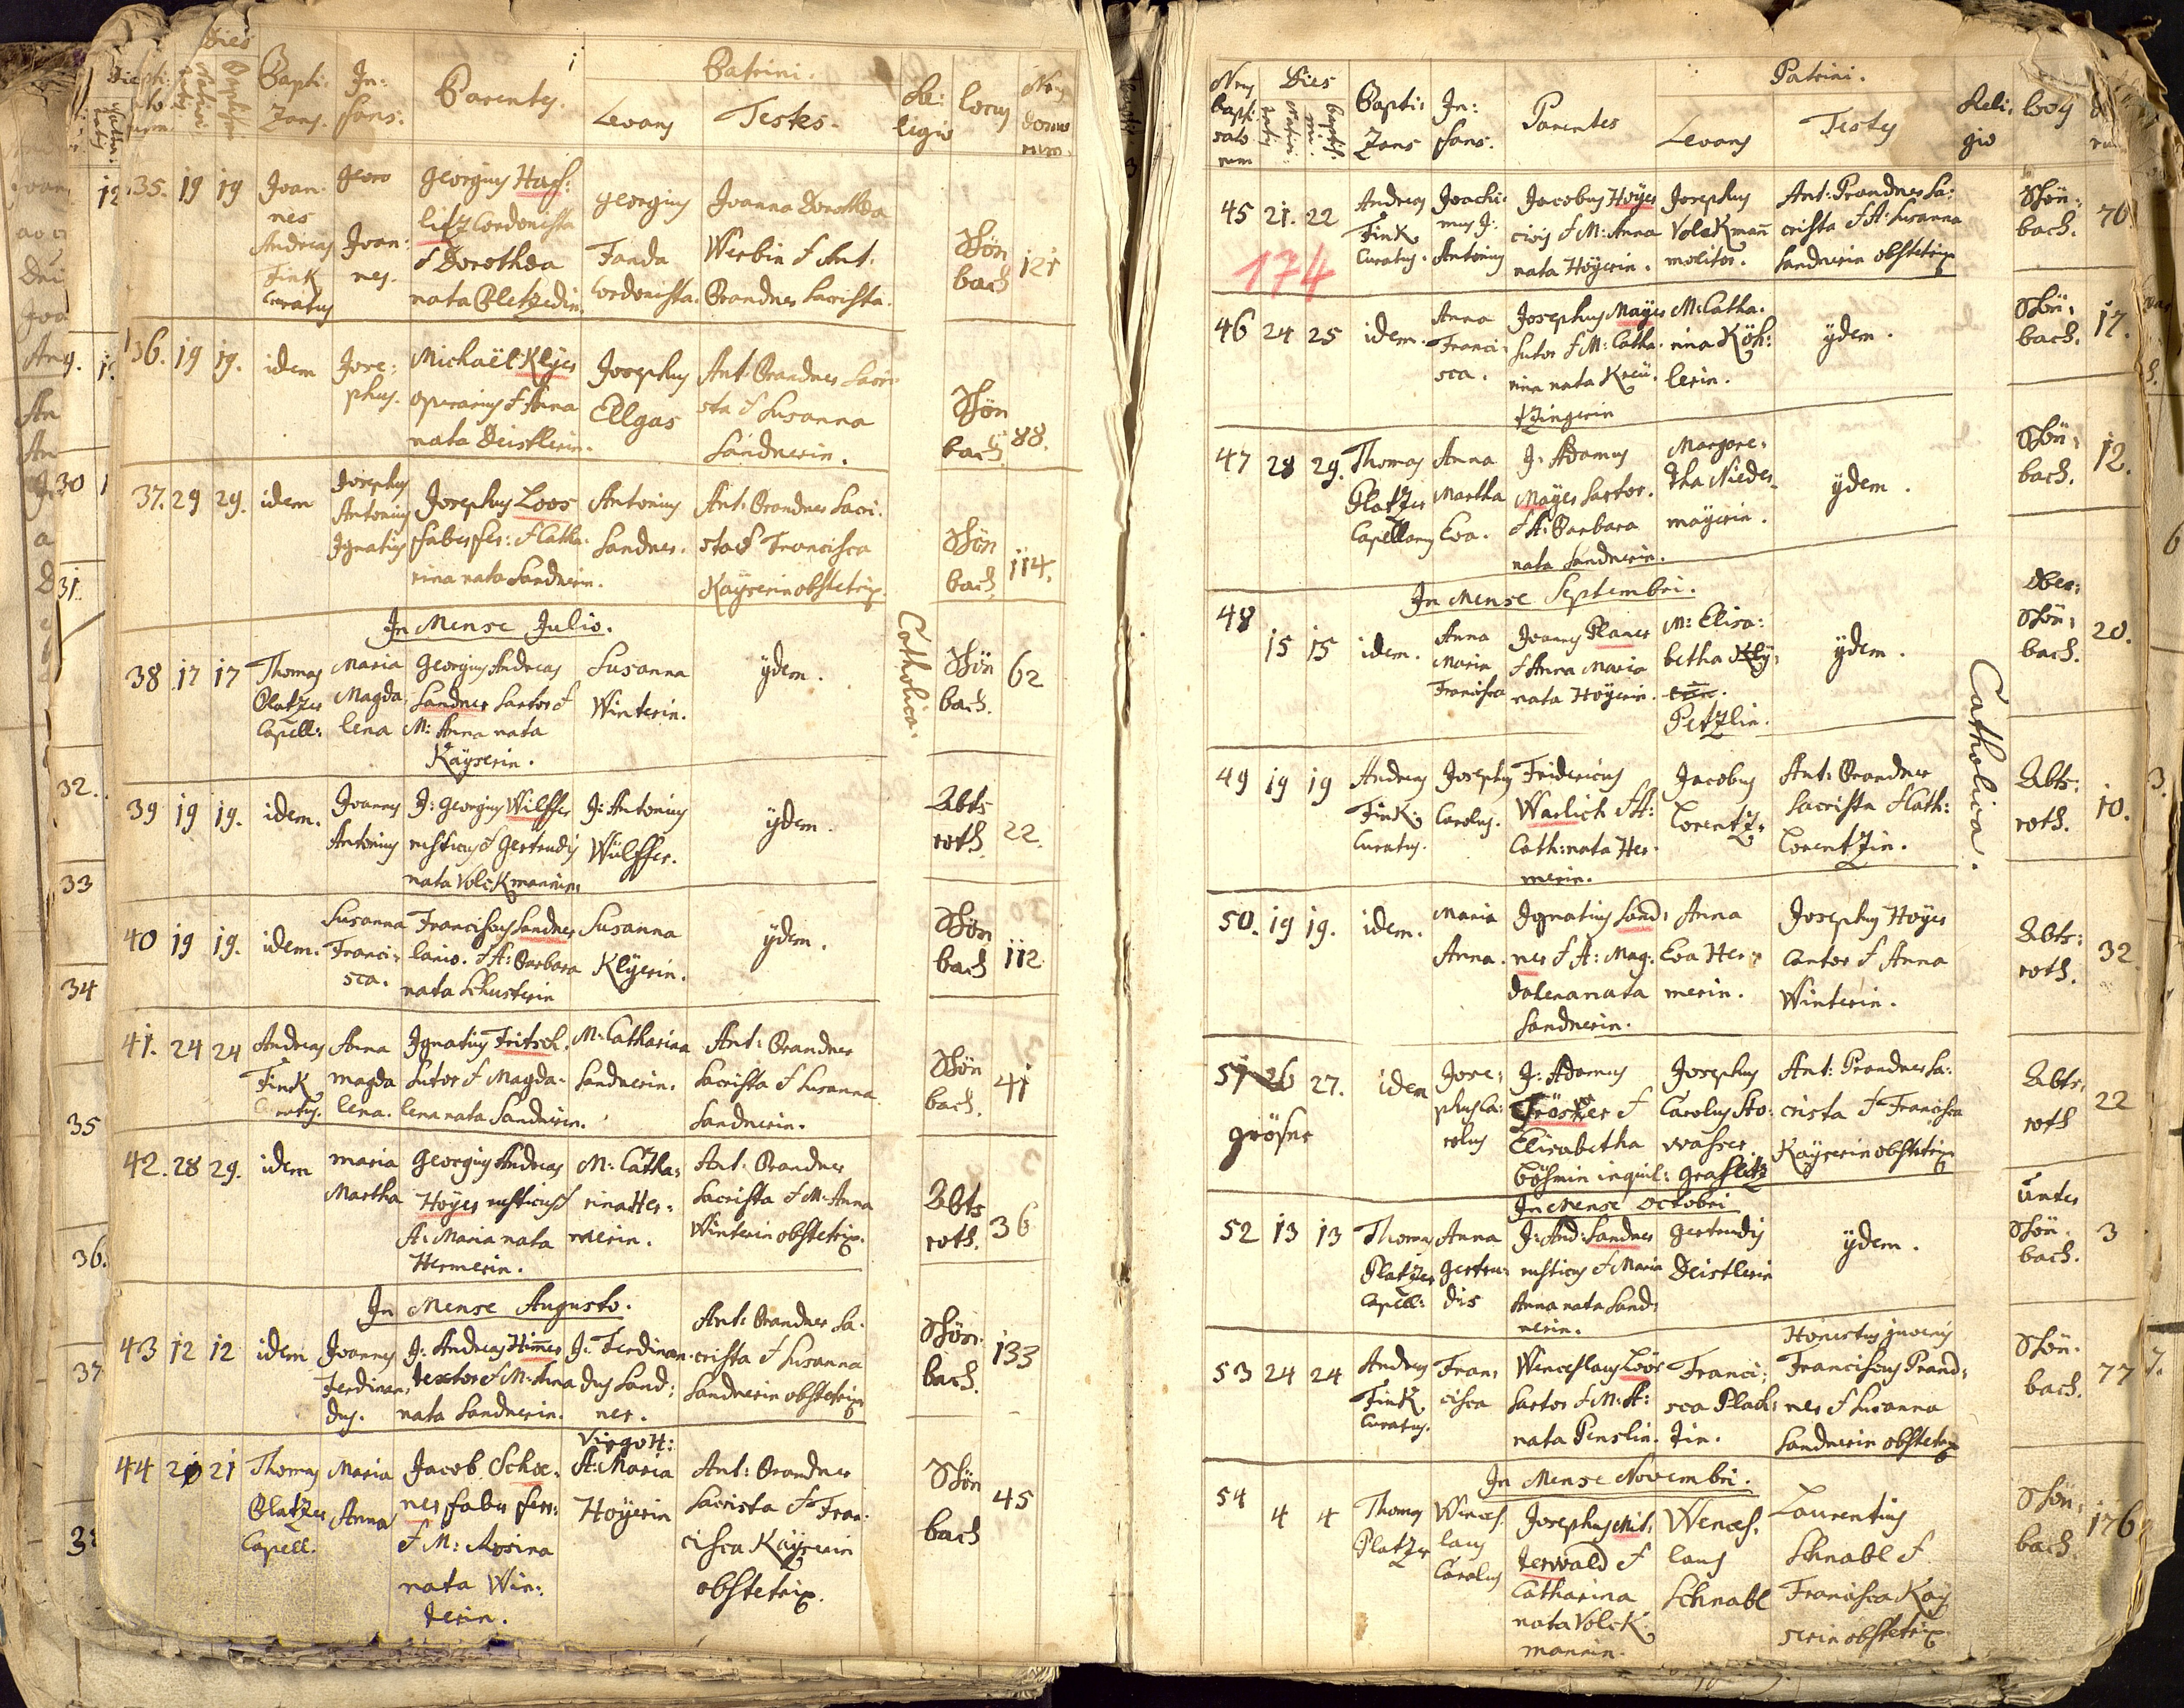 Dies
Bapti:
Zans.
In:
fans.
Parentes.
Patrini.
Levans
Testes.
Re:
ligio
locus
Nrus
domo
rum.
35. 19 19
Joan:
nes
Andreas
Fink
Curatus
Georg
Joan:
nes.
Georgius Haß:
litz Cordonista
& Dorothea
nata Pletzedin.
Georgius
Fanda
Cordonista.
Joanna Dorothea
Werbin & Ant:
Brandner Sacrista.
Schön
bach
121
36. 19 19.
idem
Jose:
phus.
Michaël Klyer
operarius & Anna
nata Deistlerin.
Josephus
Ellgas
Ant: Brandner Sacri
sta & Susanna
Sandnerin.
Schön
bach
88.
37. 29 29.
idem
Josephus
Antonius
Ignatius
Josephus Loos
faber fer: & Catha:
rina nata Sandnerin.
Antonius
Sandner.
Ant: Brandner Sacri.
sta & Francisca
Kayserin obstetrix.
Schön
bach
114.
In Mense Julio.
38 17 17
Thomas
Platzer
Capell:
Maria
Magda
lena
Georgius Andreas
Sandner Sartor &
M: Anna nata
Kayserin.
Susanna
Winterin.
ÿdem.
Catholica.
Schön
bach.
62
39 19 19.
idem.
Joannes
Antonius
J: Georgius Wilffer
rusticus & Gertrudis
nata Volckmannin.
J: Antonius
Wülffer.
ÿdem.
Abts
roth.
22.
40 19 19.
idem.
Susanna
Franci:
sca.
Franciscus Sandner
lanio. & A: Barbara
nata Schusterin
Susanna
Klÿerin.
ÿdem.
Schön
bach
112
41. 24 24
Andreas
Fink
Curatus.
Anna
magda
lena.
Ignatius Fritsch.
Sutor & Magda-
lena nata Sandnerin.
M: Catharina
Sandnerin.
Ant: Brandner
Sacrista & Susanna
Sandnerin.
Schön
bach.
41
42. 28 29.
idem
maria
Martha
Georgius Andreas
Höyer rusticus &
A: Maria nata
Hermerin.
M: Catha:
rina Her:
merin.
Ant: Brandner
Sacrista & M: Anna
Winterin obstetrix.
Abts
roth.
36
In Mense Augusto.
43 12 12
idem
Joannes
Ferdinan:
dus.
J: Andreas Him̄er
textor & M: Anna
nata Sandnerin.
J: Ferdinan
dus Sand:
ner.
Ant: Brandner Sa:
crista & Susanna
Sandnerin obstetrix
Schön:
bach.
133
44 20 21
Thomas
Platzer
Capell.
Maria
Anna
Jacob Schoe:
ner faber ferr:
& M: Rosina
nata Win:
terin.
Virgo H:
A: Maria
Hoÿerin
Ant: Brandner
Sacrista & Fran:
cisca Kaÿserin
obstetrix.
Schön
bach
45
Nrus
bapti
sato
rum
Dies
Bapti:
Zans
In:
fans.
Parentes
Patrini.
Levans
Testes
Reli:
gio
locus
45 21. 22
174
Andreas
Fink
Curatus.
Joachi:
mus J:
Antonius
Jacobus Hoÿer
civis & M: Anna
nata Höyerin.
Josephus
Volckman̄
molitor.
Ant: Brandner Sa:
crista & A: Susanna
Sandnerin obstetrix
Schön:
bach.
70
46 24 25
idem.
Anna
Franci:
sca.
Josephus Mayer
Sutor & M: Catha:
rina nata Kreü:
tzingerin
M: Catha:
rina Köh:
lerin.
ÿdem.
Schön:
bach.
17.
47 28 29.
Thomas
Platzer
Capellanus
Anna
Martha
Eva.
J: Adamus
Mayer Sartor.
& A: Barbara
nata Sandnerin.
Margare:
tha Nieder
mayerin.
ÿdem.
Schön:
bach.
12.
In Mense Septembri.
48 15 15
idem.
Anna
Maria
Francisca
Joannes Planer
& Anna Maria
nata Hoyerin.
M: Elisa:
betha Klÿ:
erin.
Petzlin.
ÿdem.
Ober:
Schön:
bach.
20.
49 19 19
Andreas
Fink
Curatus.
Josephus
Carolus.
Fridericus
Warlich & A:
Cath: nata Her:
merin.
Jacobus
Lorentz.
Ant: Brandner
Sacrista & Cath:
Lorentzin.
Catholica.
Abts:
roth.
10.
50. 19 19.
idem.
Maria
Anna.
Ignatius Sand:
ner & A: Mag:
dalena nata
Sandnerin.
Anna
Eva Her:
merin.
Josephus Hoÿer
Cantor & Anna
Winterin.
Abts:
roth.
32
51 26 27.
grösner
idem
Jose:
phus Ca:
rolus
J: Adamus
Fröster &
Elisabetha
Böhmin inquil: Graslitz
Josephus
Carolus Sto:
wasser
Ant: Brandner Sa:
crista & Francisca
Kaÿserin obstetrix
Abts:
roth
22
In Mense Octobri
52 13 13
Thomas
Platzer
Capell:
Anna
Gertru:
dis
J: And: Sandner
rusticus & Maria
Anna nata Sand:
nerin.
Gertrudis
Deistlerin
ÿdem.
Unter
Schön:
bach.
3
53 24 24
Andreas
Fink
Curatus.
Fran:
cisca
Wenceslaus Loos
Sartor & M: A:
nata Penslin.
Franci:
sca Plach:
tin.
Honestus juvenis
Franciscus Brand:
ner & Susanna
Sandnerin obstetrix
Schön:
bach.
77
In Mense Novembri.
54 4 4
Thomas
Platzer
Wences:
laus
Carolus
Josephus Mit:
terwald &
Catharina
nata Volck
mannin.
Wences:
laus
Schnabl
Laurentius
Schnabl &
Francisca Kaÿ
serin obstetrix.
Schön:
bach.
176